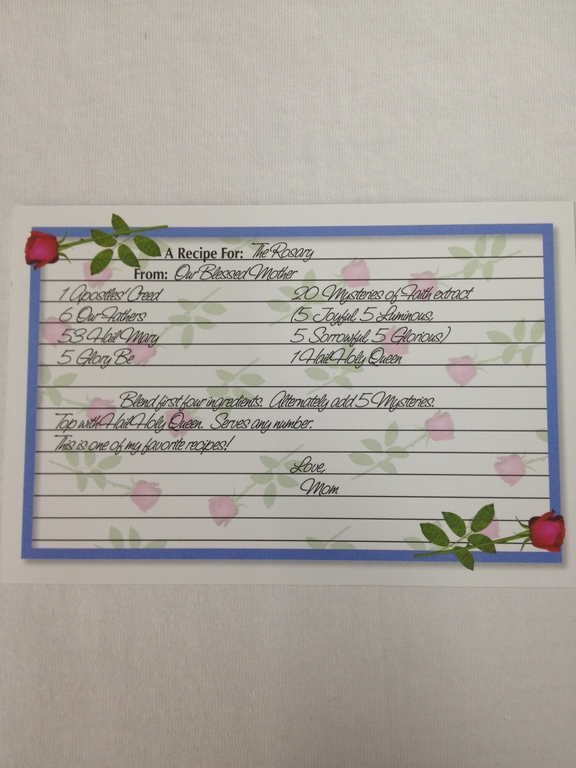 A Recipe For: The Rosary
From: Our Blessed Mother
1 Apostles' Creed 20 Mysteries of Faith extract
6 Our Fathers (5 Joyful, 5 Luminous,
53 Hail Mary 5 Sorrowful, 5 Glorious)
5 Glory Be 1 Hail Holy Queen
Blend first four ingredients. Alternately add 5 Mysteries.
Top with Hail Holy Queen. Serves any number.
This is one of my favorite recipes!
Love,
Mom